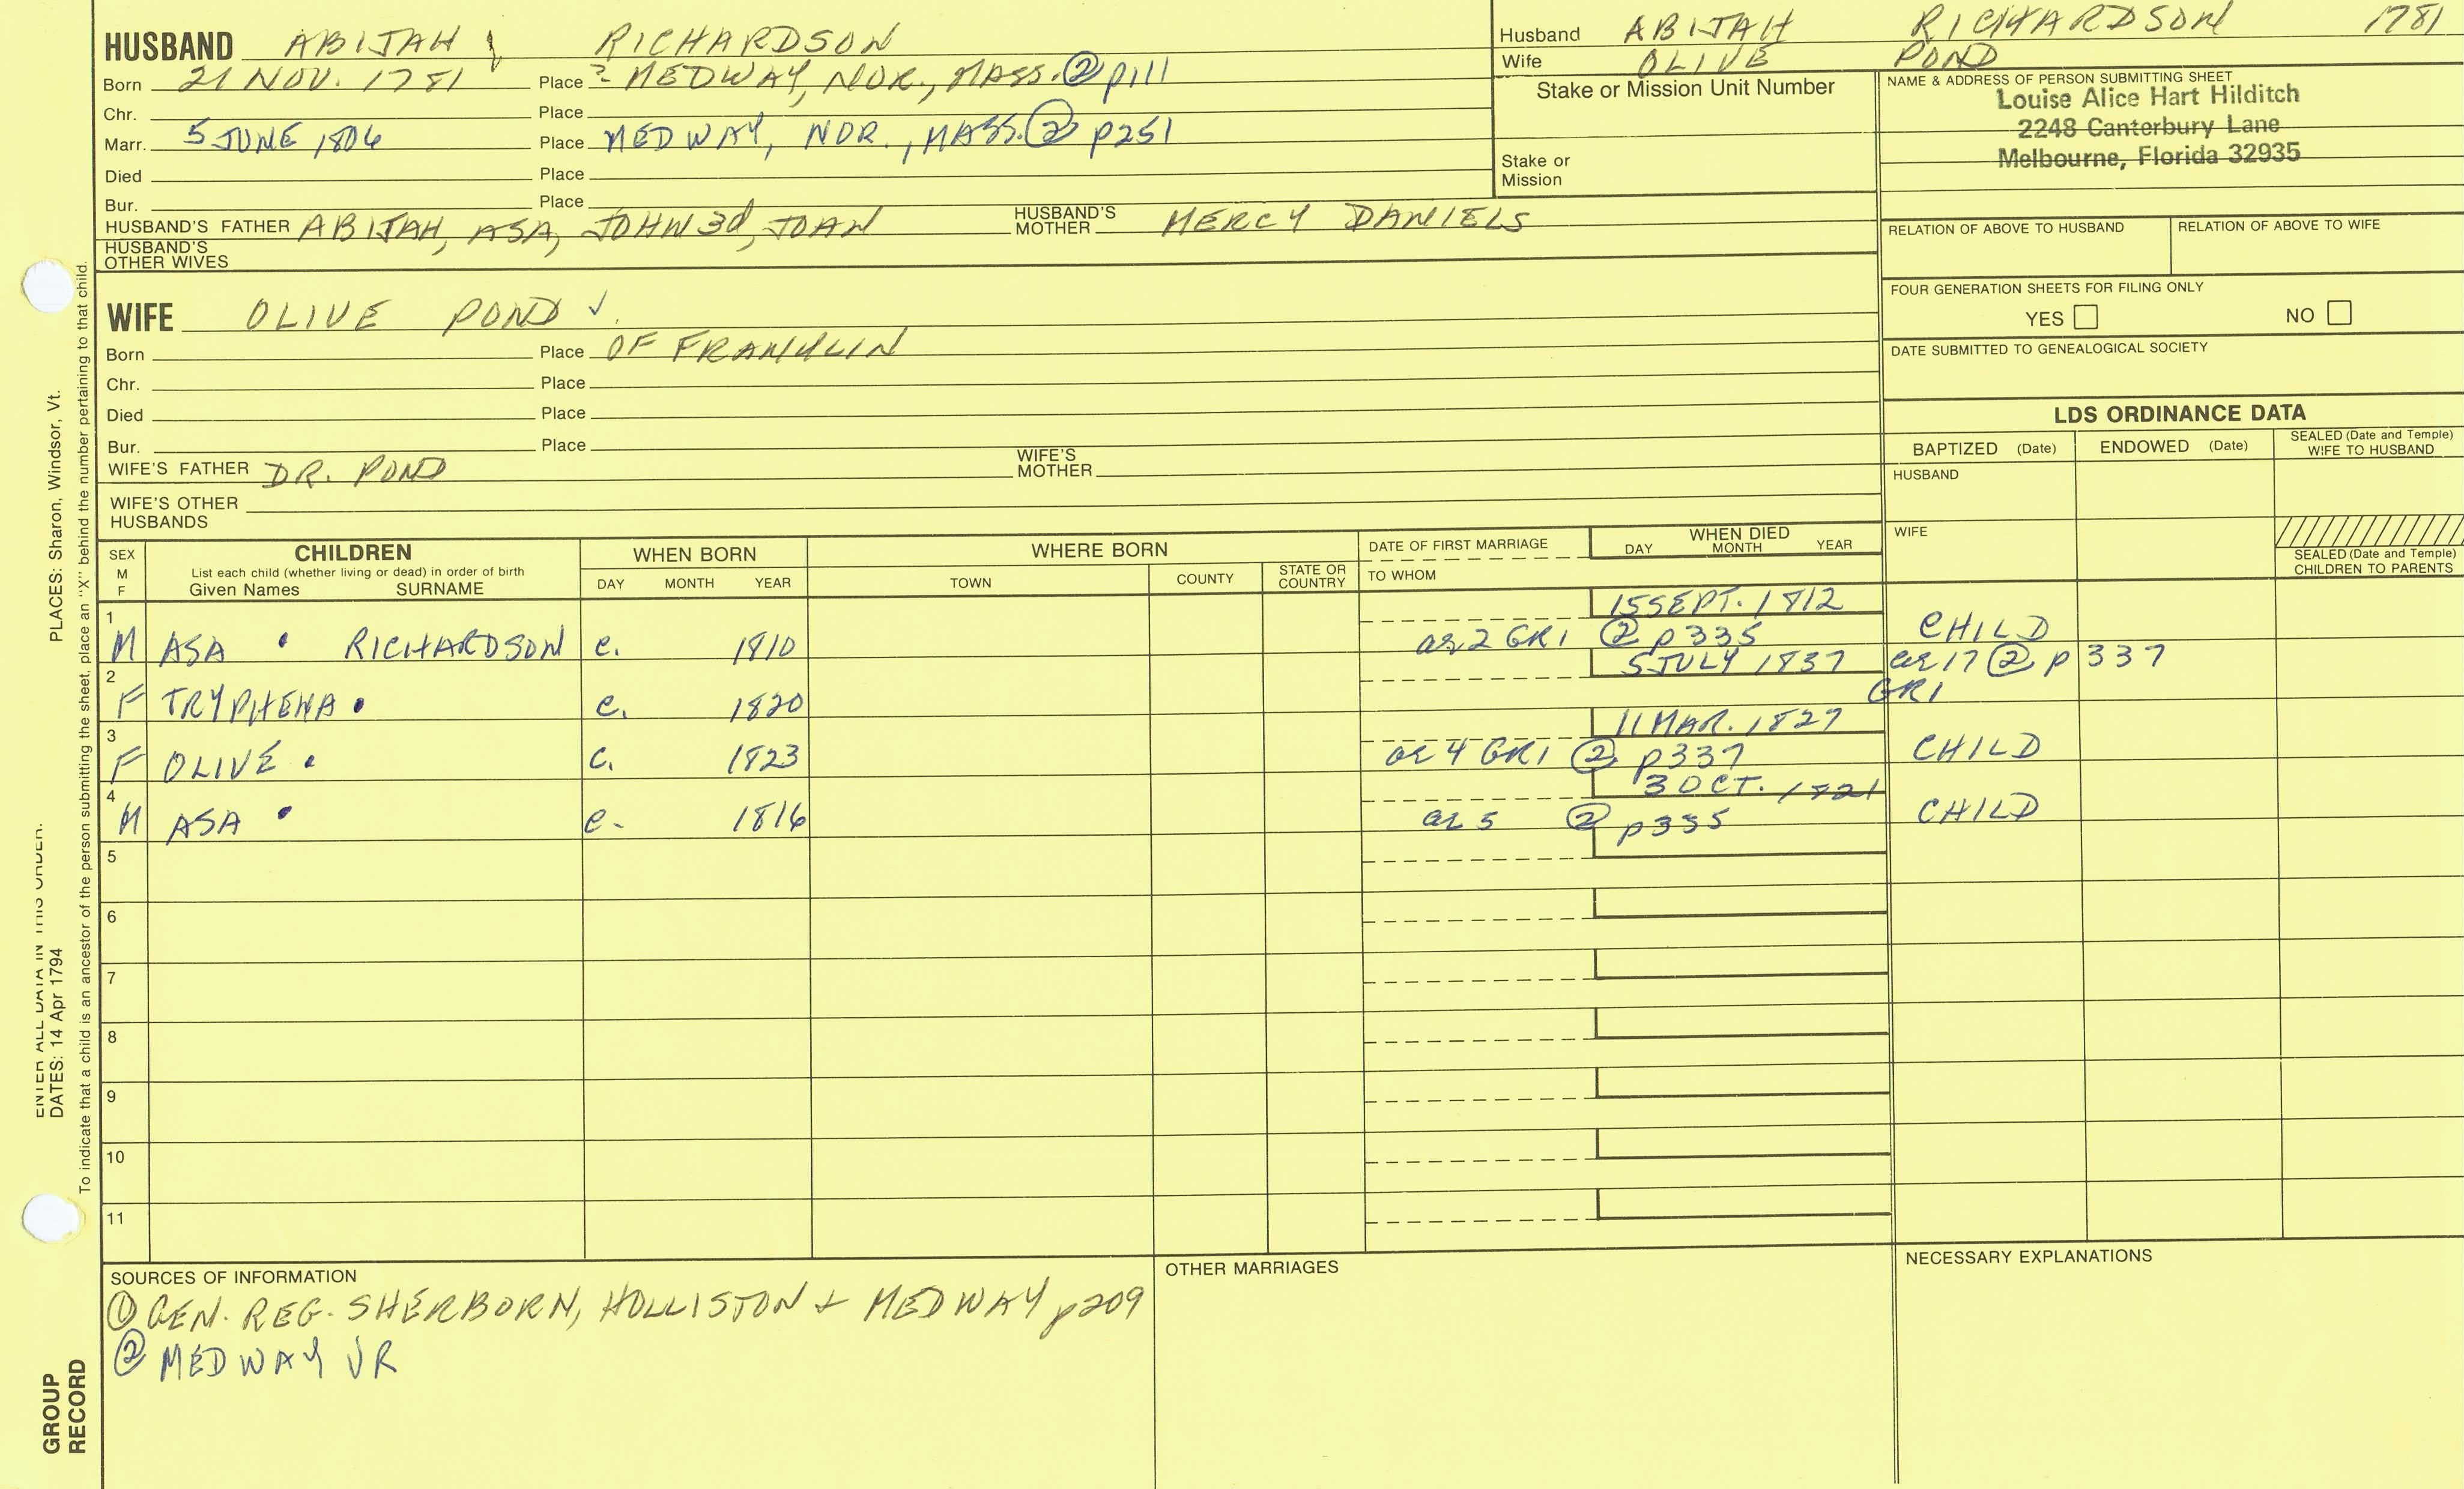 HUSBAND ABIJAH RICHARDSON
Born 21 NOV. 1781 Place ? MEDWAY, NOR., MASS. ② p111
Chr. Place
Marr. 5 JUNE 1806 Place MEDWAY, NOR., MASS. ② p251
Died Place
Bur. Place
HUSBAND'S FATHER ABIJAH, ASA, JOHN 3d, JOHN HUSBAND'S MOTHER MERCY DANIELS
HUSBAND'S OTHER WIVES
Husband ABIJAH RICHARDSON 1781
Wife OLIVE POND
Stake or Mission Unit Number
Stake or Mission
NAME & ADDRESS OF PERSON SUBMITTING SHEET
Louise Alice Hart Hilditch
2248 Canterbury Lane
Melbourne, Florida 32935
RELATION OF ABOVE TO HUSBAND RELATION OF ABOVE TO WIFE
FOUR GENERATION SHEETS FOR FILING ONLY
YES NO
DATE SUBMITTED TO GENEALOGICAL SOCIETY
WIFE OLIVE POND ✓
Born Place OF FRANKLIN
Chr. Place
Died Place
Bur. Place
WIFE'S FATHER DR. POND WIFE'S MOTHER
WIFE'S OTHER HUSBANDS
LDS ORDINANCE DATA
BAPTIZED (Date) ENDOWED (Date) SEALED (Date and Temple) WIFE TO HUSBAND
HUSBAND
WIFE
SEALED (Date and Temple) CHILDREN TO PARENTS
SEX M F CHILDREN WHEN BORN WHERE BORN DATE OF FIRST MARRIAGE WHEN DIED
List each child (whether living or dead) in order of birth
Given Names SURNAME DAY MONTH YEAR TOWN COUNTY STATE OR COUNTRY TO WHOM DAY MONTH YEAR
1 15 SEPT. 1812
M ASA RICHARDSON c. 1810 ae 2 GR1 ② p335 CHILD
2 5 JULY 1837 ae 17 ② p 337
F TRYPHENA c. 1820 GR1
3 11 MAR. 1827
F OLIVE c. 1823 ae 4 GR1 ② p337 CHILD
4 3 OCT. 1821
M ASA c. 1816 ae 5 ② p335 CHILD
5
6
7
8
9
10
11
SOURCES OF INFORMATION
① GEN. REG. SHERBORN, HOLLISTON + MEDWAY p209
② MEDWAY VR
OTHER MARRIAGES
NECESSARY EXPLANATIONS
DATES: 14 Apr 1794 PLACES: Sharon, Windsor, Vt.
To indicate that a child is an ancestor of the person submitting the sheet, place an "X" behind the number pertaining to that child.
GROUP
RECORD